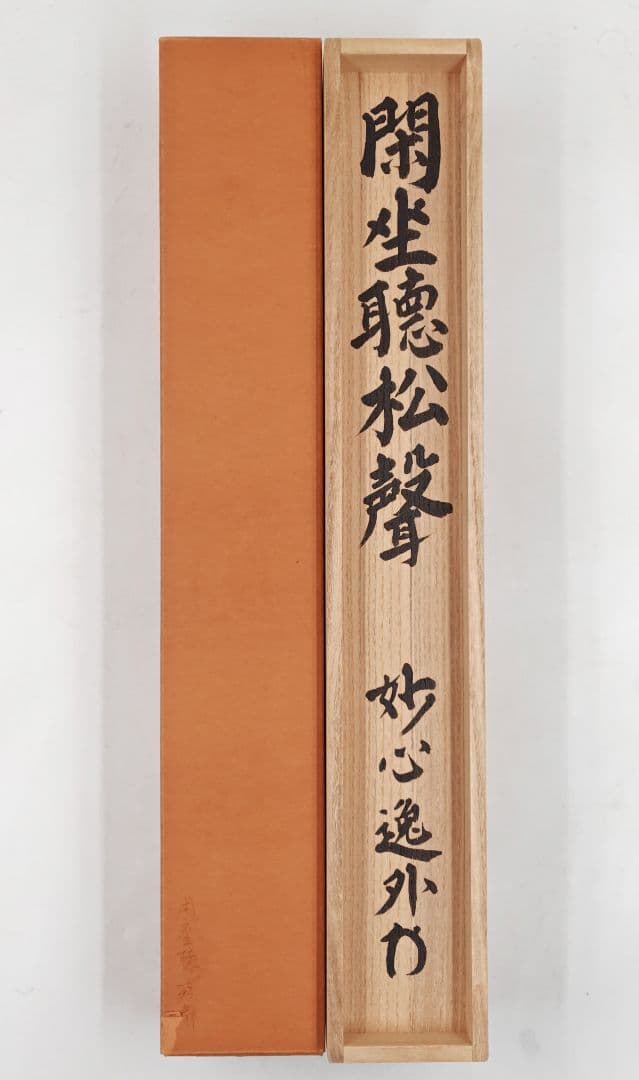 閑坐聴松聲
妙心逸外